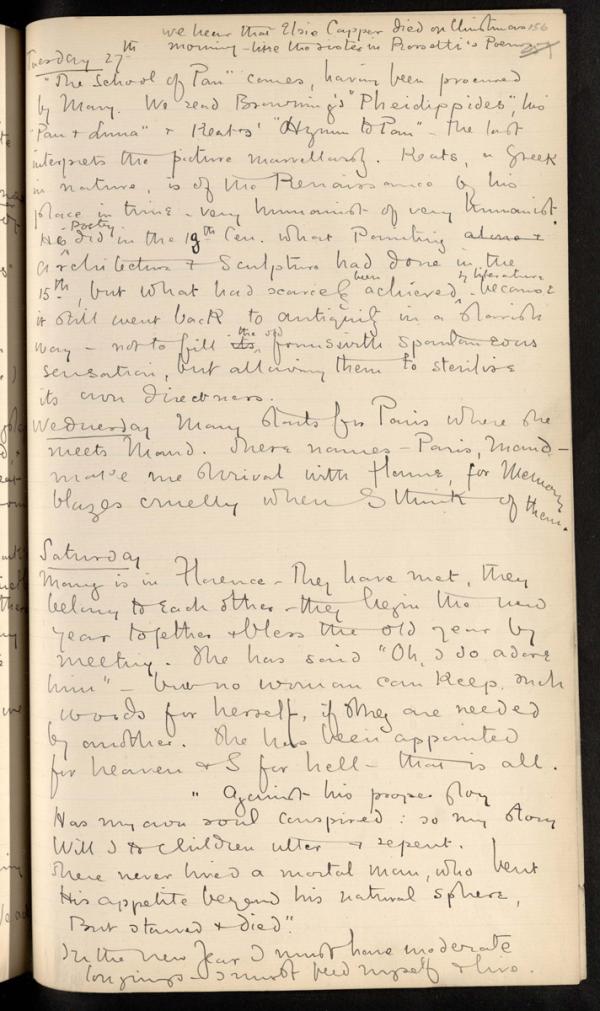 we hear that Elsie Capper died on Christmas 156
morning – like the sister in Rossetti's Poem.
Tuesday 27th
"The School of Pan" comes, having been procured
by Mary. We read Browning's "Pheidippides", his
"Pan & Luna" & Keats' "Hymn to Pan" – the last
interprets the picture marvellously. Keats, a Greek
in nature, is of the Renaissance by his
place in time – very humanist of very humanist.
Poetry
He did in the 19th Cen. what Painting alone &
Architecture & Sculpture had done in the
15th, but what had scarcely been achieved by literature – because
it still went back to antiquity in a slavish
way – not to fill its the old forms with spontaneous
sensation, but allowing them to sterilise
its own directness.
Wednesday Mary starts for Paris where she
meets Maud. These names – Paris, Maud –
make me shrivel with flame, for Memory
blazes cruelly when I think of them.
Saturday
Mary is in Florence – They have met, they
belong to each other – they begin the new
year together & bless the old year by
meeting. She has said "Oh, I do adore
him" – but no woman can keep such
words for herself, if they are needed
by another. She has been appointed
for heaven & I for hell – that is all.
" Against his proper glory
Has my own soul conspired: so my story
Will I to children utter & repent.
There never lived a mortal man, who bent
His appetite beyond his natural sphere,
But starved & died".
In the new Year I must have moderate
longings – I must feed myself & live.